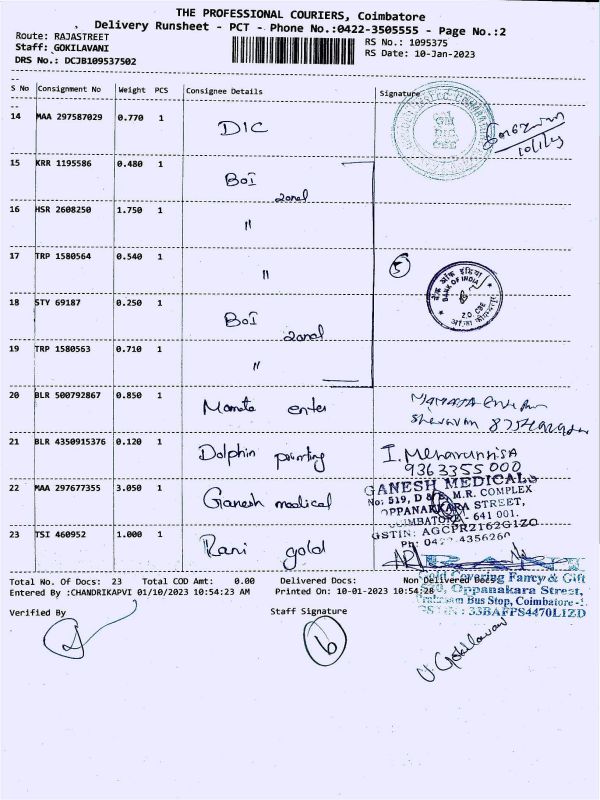 THE PROFESSIONAL COURIERS, Coimbatore
Delivery Runsheet - PCT - Phone No.:0422-3505555 - Page No.:2
Route: RAJASTREET
RS No.: 1095375
Staff: GOKILAVANI
RS Date: 10-Jan-2023
DRS No.: DCJB109537502
S No Consignment No Weight PCS Consignee Details Signature
14 MAA 297587029 0.770 1 DIC
GM
DIC
CBE
10/1/23
15 KRR 1195586 0.480 1 BoI
zonal
16 HSR 2608250 1.750 1 "
17 TRP 1580564 0.540 1 "
5
बैंक ऑफ इंडिया
BANK OF INDIA
Z.O. CBE
18 STY 69187 0.250 1 BoI
zonal
19 TRP 1580563 0.710 1 "
20 BLR 500792867 0.850 1 Mamata enter
21 BLR 4350915376 0.120 1 Dolphin printing
I. Meharunnisa
9363355000
22 MAA 297677355 3.050 1 Ganesh medical
GANESH MEDICALS
No: 519, D & E, M.R. COMPLEX
OPPANAKKARA STREET,
COIMBATORE - 641 001.
GSTIN: AGCPR2162G1ZO
Ph: 0422 4356260
23 TSI 460952 1.000 1 Rani gold
Gold Covering Fancy & Gift
Oppanakara Street,
Prakasam Bus Stop, Coimbatore-1.
GSTIN : 33BAFFS4470L1ZD
Total No. Of Docs: 23 Total COD Amt: 0.00 Delivered Docs: Non Delivered Docs:
Entered By :CHANDRIKAPVI 01/10/2023 10:54:23 AM Printed On: 10-01-2023 10:54:28
Verified By Staff Signature
6
V. Gokilavani